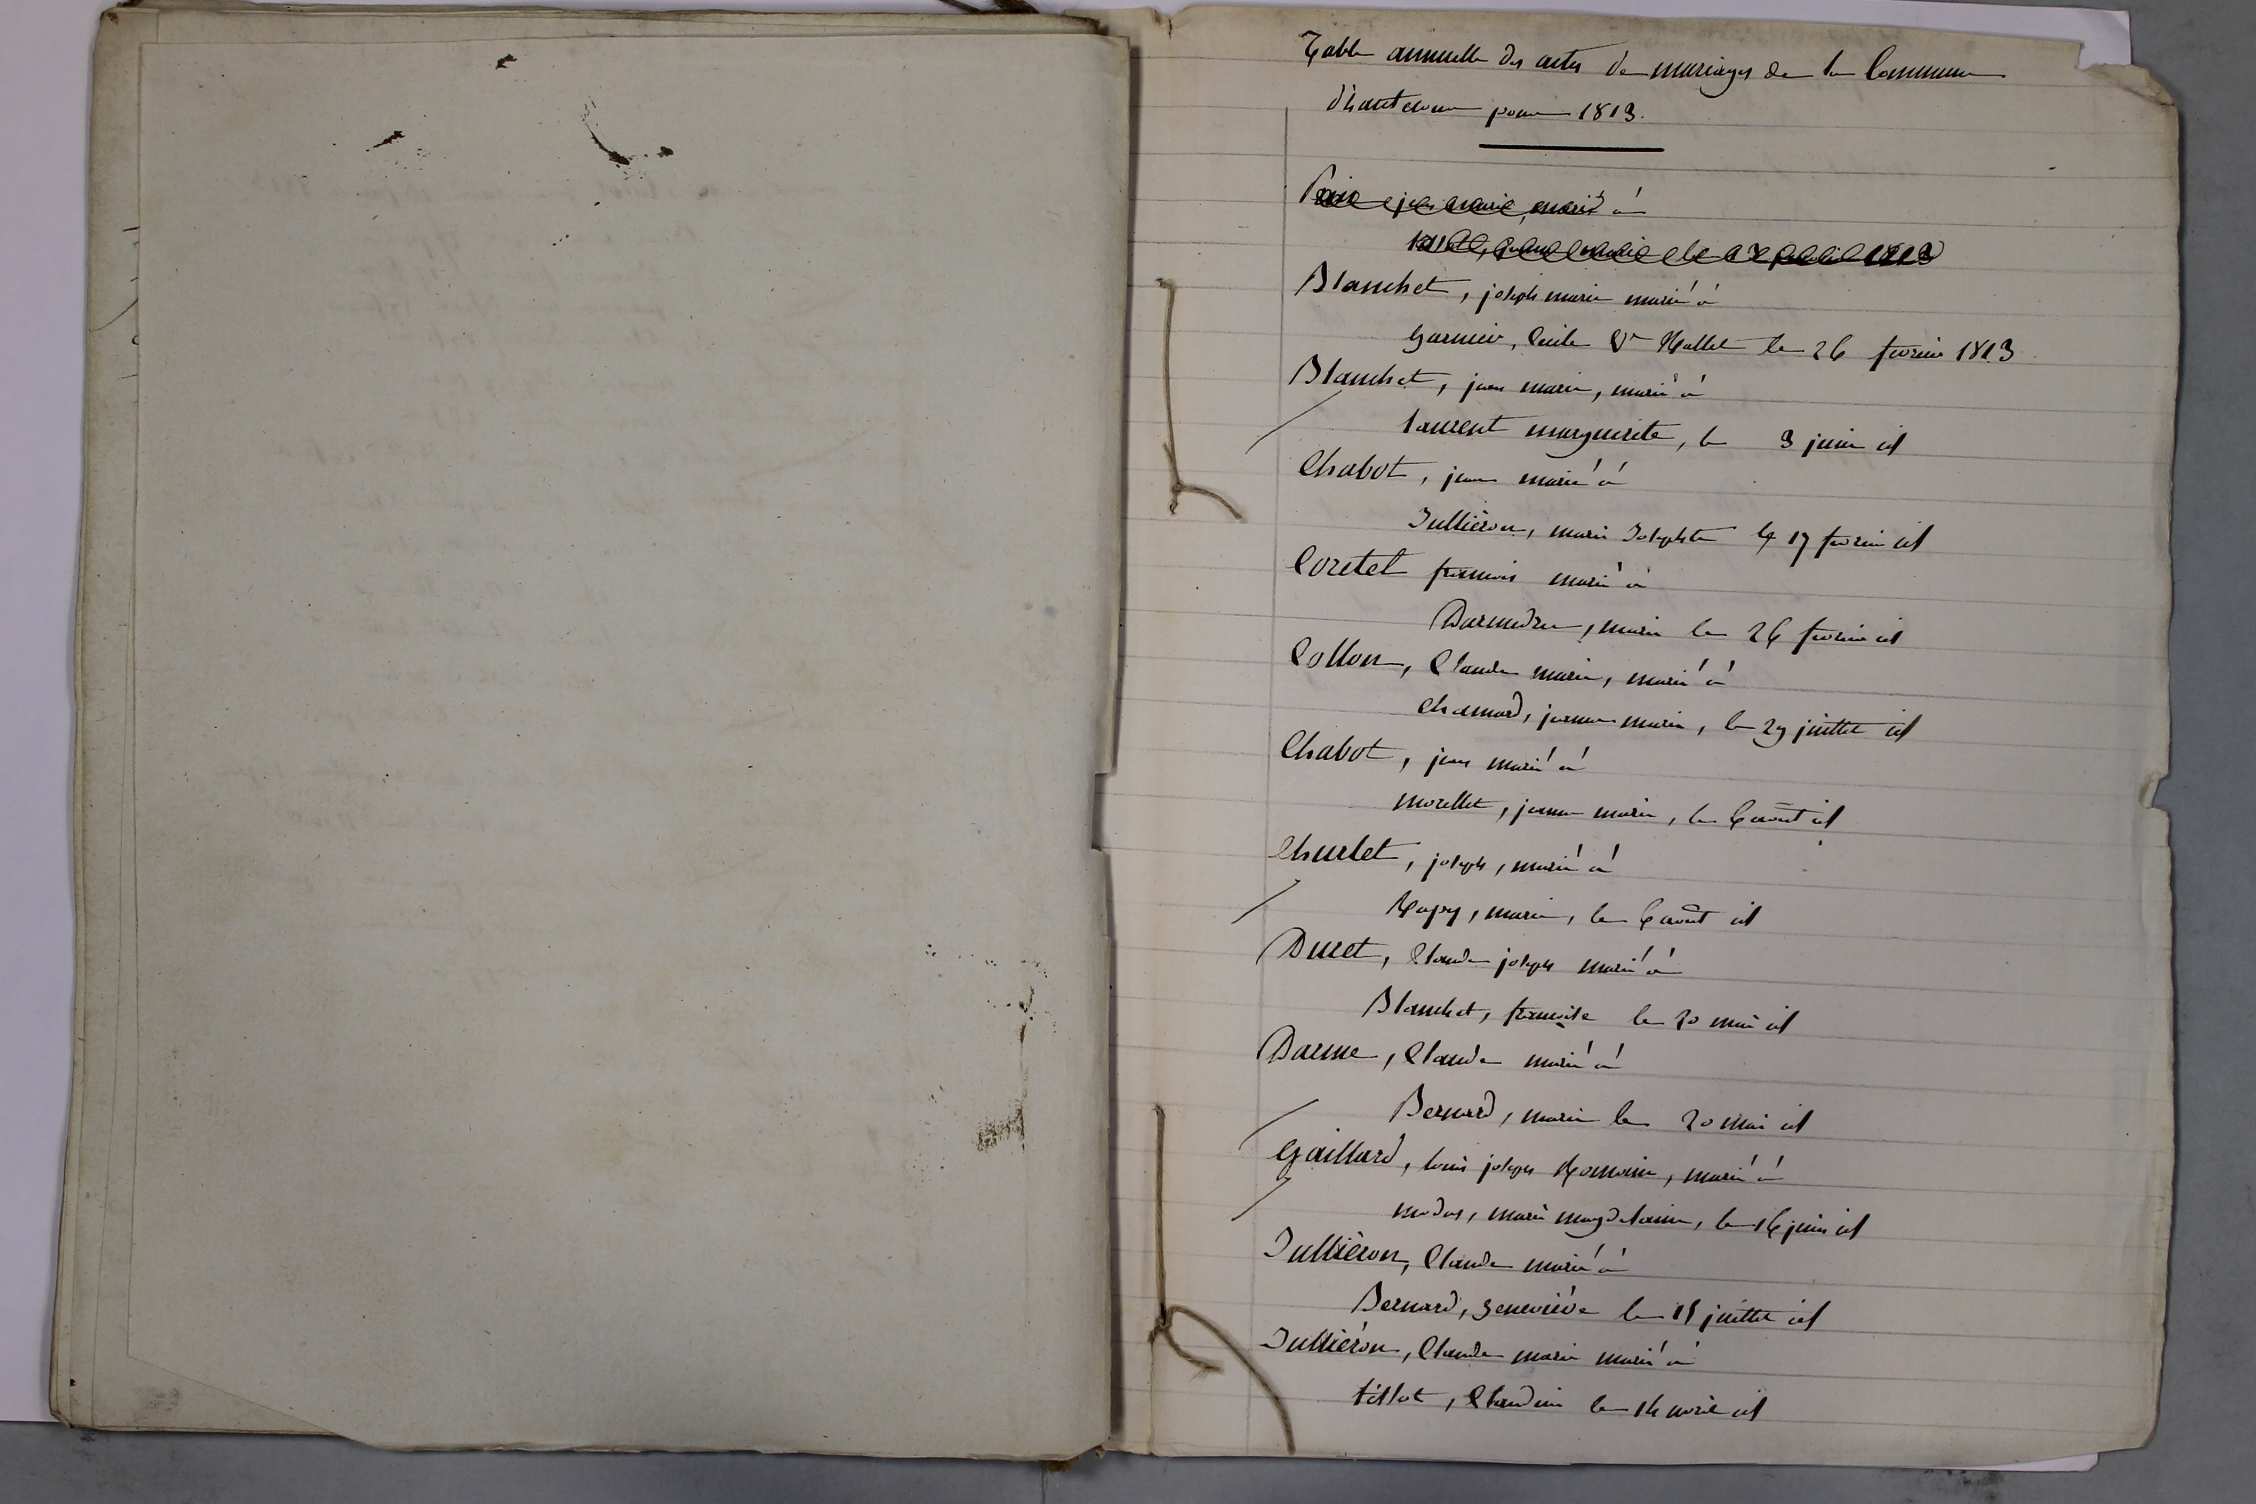 Table annuelle des actes de mariages de la Commune
d'hautecour pour 1813.
marié à
le 1813
Blanchet, joseph marie marié à
Garnier, Cécile Ve Mollet le 26 février 1813
Blanchet, jean marie, marié à
laurent marguerite, le 3 juin id
Chabot, jean marié à
Jullieron, marie Josephte le 17 février id
Coretel françois marié à
marie le 26 février id
Collon, Claude marie, marié à
Chamard, jeanne marie, le 29 juillet id
Chabot, jean marié à
morellet, jeanne marie, le 6 août id
Churlet, joseph, marié à
Ropy, marie, le 6 août id
Duret, Claude joseph marié à
Blanchet, françoise le 20 mai id
Darme, Claude marié à
Bernard, marie le 20 mai id
Gaillard, louis joseph Romain, marié à
modas, marie magdelaine, le 16 juin id
Jullièron, Claude marié à
Bernard, geneviève le 15 juillet id
Jullièron, Claude marie marié à
tillot, Claudine le 14 avril id